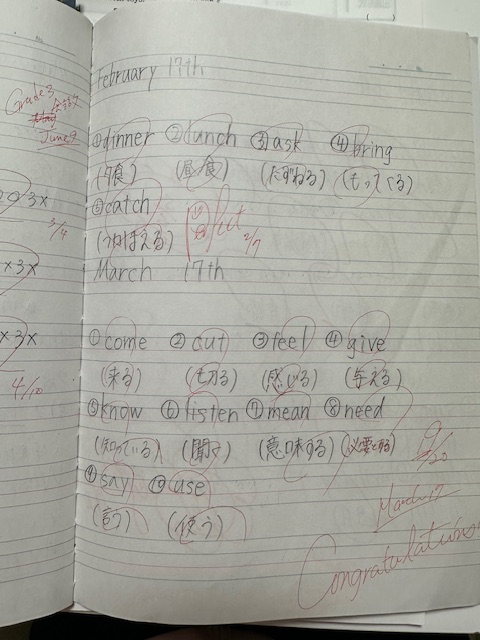 February 17th
Grade 3
June 9
①dinner ②lunch ③ask ④bring
(夕食) (昼食) (たずねる) (もってくる)
⑤catch
(つかまえる)
3x
3/4
March 17th
x3x
①come ②cut ③feel ④give
x3x
(来る) (切る) (感じる) (与える)
4/10
⑤know ⑥listen ⑦mean ⑧need
(知っている) (聞く) (意味する) (必要とする)
⑨say ⑩use
(言う) (使う)
March 17
Congratulations!